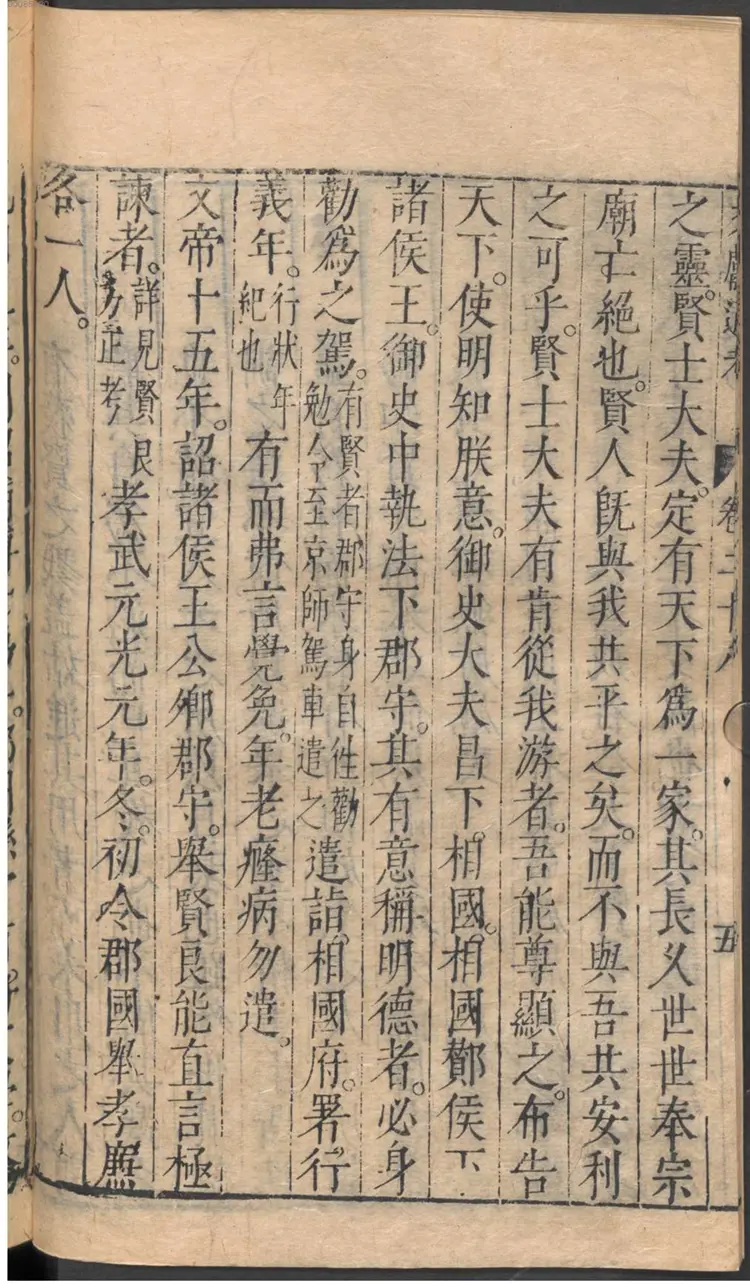 之靈賢士大夫定有天下爲一家其長久世世奉宗
廟亡絕也賢人旣與我共平之矣而不與吾共安利
之可乎賢士大夫有肯從我游者吾能尊顯之布告
天下使明知朕意御史大夫昌下相國相國酇侯下
諸侯王御史中執法下郡守其有意稱明德者必身
勸爲之駕有賢者郡守身自徃勸勉令至京師駕車遣之遣詣相國府署行
義年行狀年紀也有而弗言覺免年老癃病勿遣
文帝十五年詔諸侯王公卿郡守舉賢良能直言極
諫者詳見賢良方正考孝武元光元年冬初令郡國舉孝廉
各一人
卷二十八
五